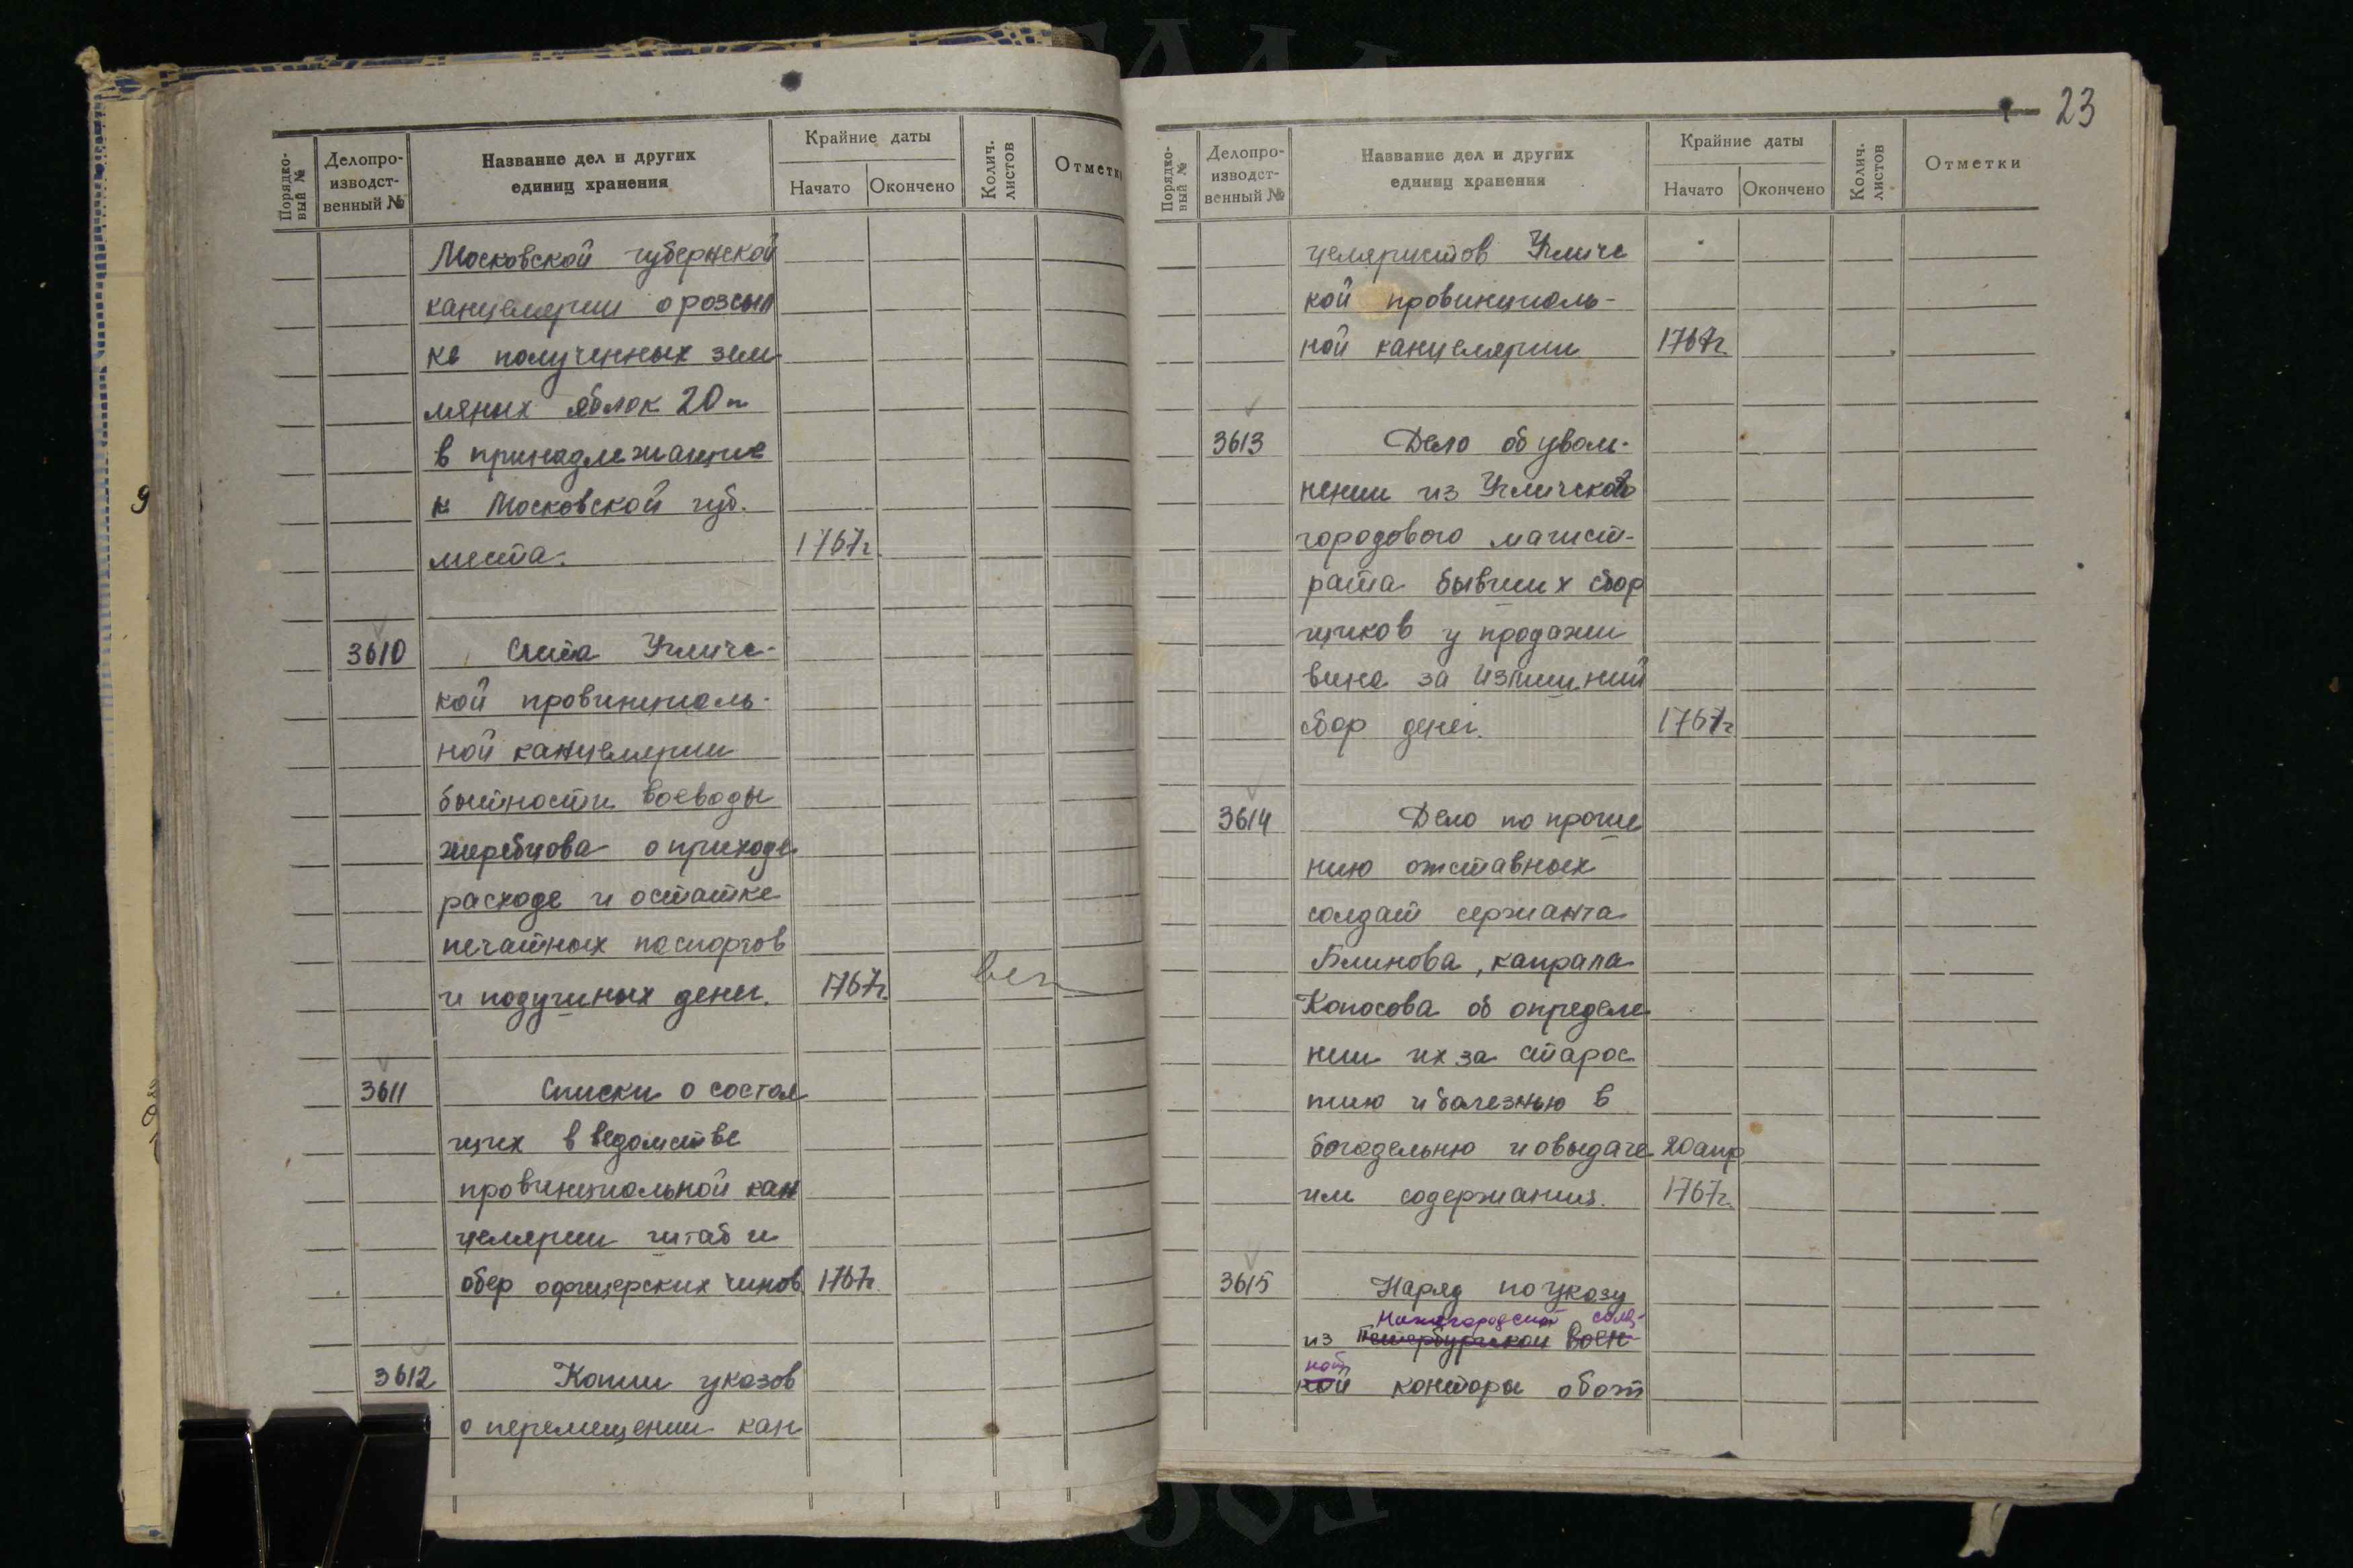 Порядко-
вый №
Делопро-
изводст-
венный №
Название дел и других
единиц хранения
Крайние даты
Начато
Окончено
Колич.
листов
Отметки
Московской губернской
канцелярии о розсыл
ке полученных зем
ляных яблок 20 п
в принадлежащие
к Московской губ.
места. 1767г.
3610 Смета Угличс-
кой провинциаль-
ной канцелярии
бытности воеводы
жеребцова о приходе
расходе и остатке
печатных паспортов
и подушных денег. 1767г.
3611 Списки о состоя
щих в ведомстве
провинциальной кан
целярии штаб и
обер офицерских чинов. 1767г.
3612 Копии указов
о перемещении кан
23
Порядко-
вый №
Делопро-
изводст-
венный №
Название дел и других
единиц хранения
Крайние даты
Начато
Окончено
Колич.
листов
Отметки
целяристов Угличс
кой провинциаль-
ной канцелярии 1767г.
3613 Дело об уволь-
нении из Угличского
городового магист-
рата бывших сбор
щиков у продажи
вина за излишний
сбор денег. 1767г
3614 Дело по проше
нию отставных
солдат сержанта
Блинова, капрала
Копосова об определе
нии их за старос
тию и болезнью в
богадельню и овыдаче 20 апр
им содержания. 1767г.
3615 Наряд по указу
Нижегородской соля-
из Петербургской Воен-
ной
ной конторы обот